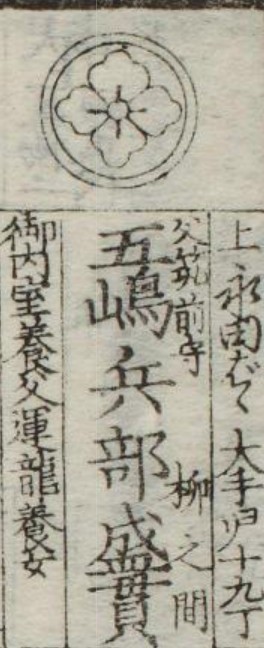 上 永田ばゝ 大手ヨリ十九丁
父筑前守 柳之間
五嶋兵部盛貫
御内室養父運龍養女